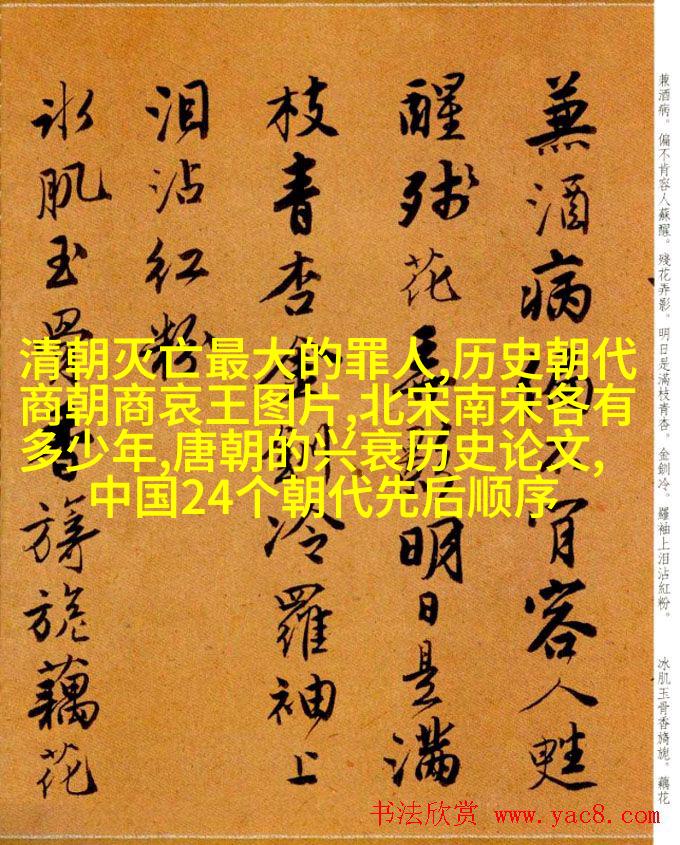 清朝灭亡最大的罪人,历史朝代
商朝商哀王图片,北宋南宋各有
多少年,唐朝的兴衰历史论文,
中国24个朝代先后顺序
兼酒病偏不肯容人甦
醒殘花弄影明日是滿
枝青杏金釧冷羅袖上
泪沾紅粉
冰肌玉骨香旖旎藕花
兼酒病。偏不肯容人蘇醒。殘花弄影。明日是滿枝青杏。金釧冷。羅袖上泪沾紅粉。 冰肌玉骨香旖旎。藕花
书法欣赏 www.yac8.com